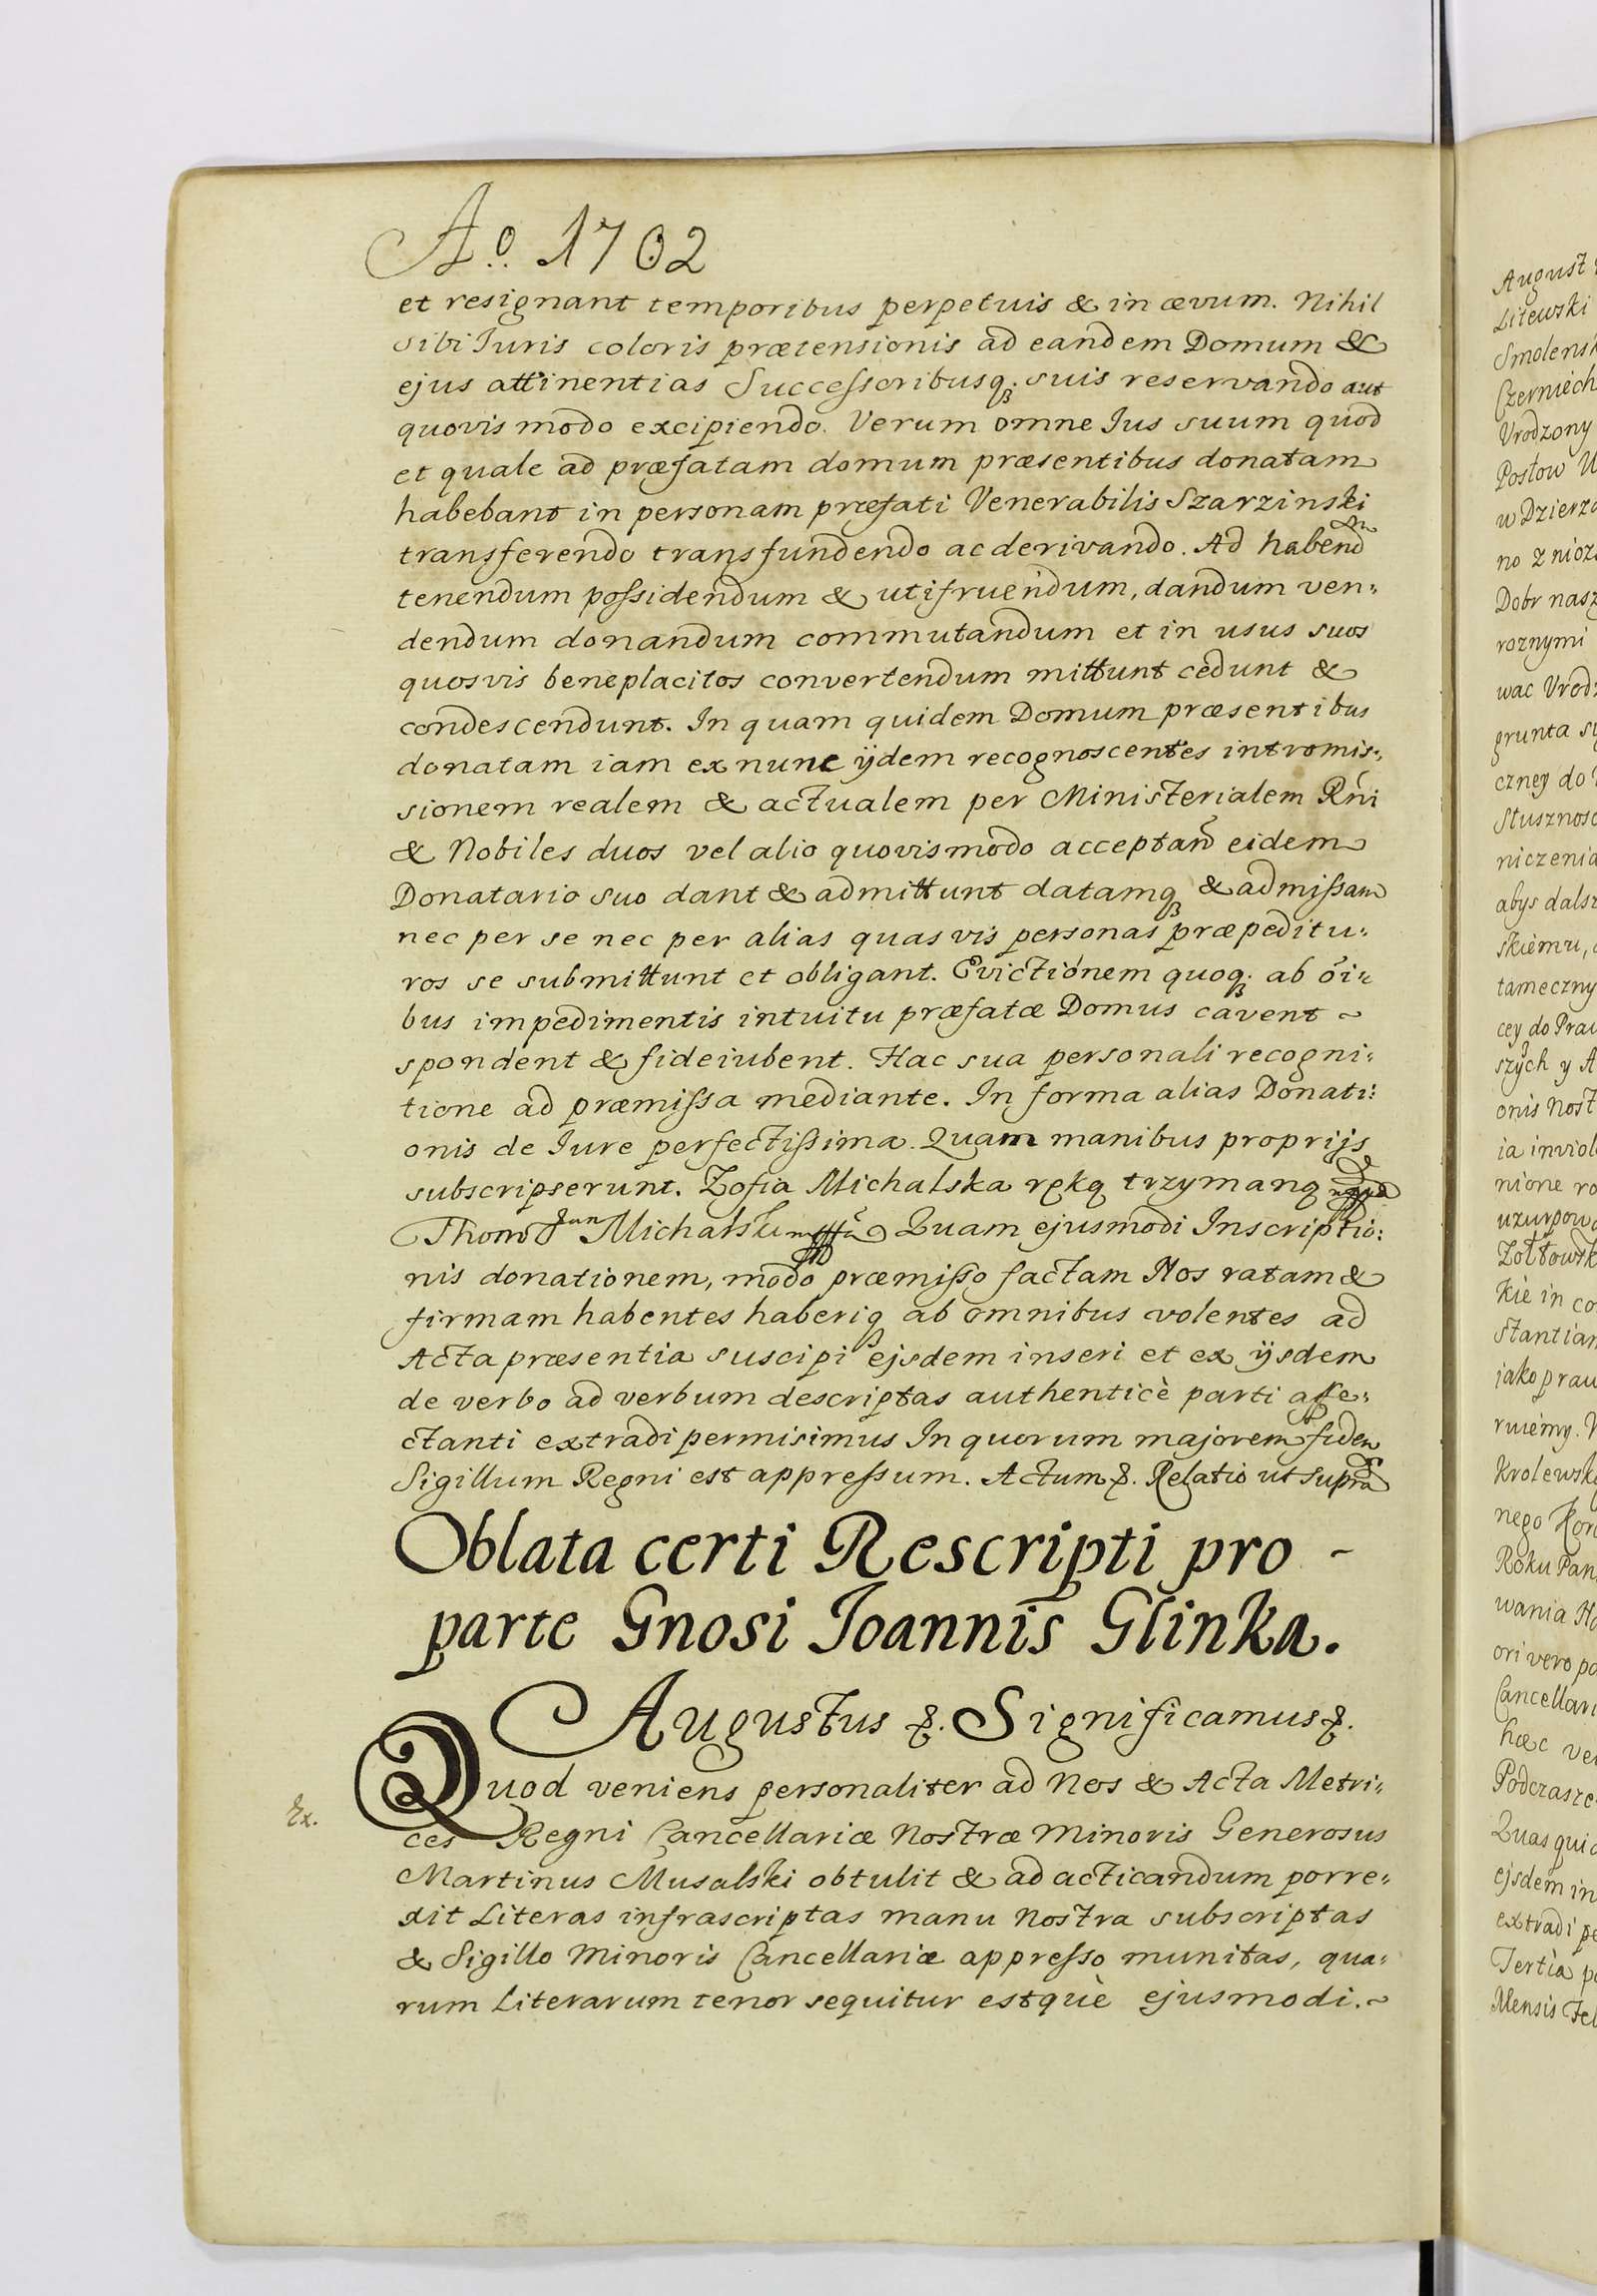 Ao. 1702
et resignant temporibus perpetuis & in ævum. Nihil
sibi Iuris coloris prætensionis ad eandem Domum &
ejus attinentias Successoribusq; suis reservando aut
quovis modo excipiendo. Verum omne Ius suum quod
et quale ad præfatam domum præsentibus donatam
habebant in personam præfati Venerabilis Szarzinski
transferendo transfundendo ac derivando. Ad habend
tenendum possidendum & utifruendum, dandum ven:
dendum donandum commutandum et in usus suos
quosvis beneplacitos convertendum mittunt cedunt &
condescendunt. In quam quidem Domum præsentibus
donatam iam ex nunc ijdem recognoscentes intromis:
sionem realem & actualem per Ministerialem Rni
& Nobiles duos vel alio quovismodo acceptand eidem
Donatario suo dant & admittunt datamq; & admissam
nec per se nec per alias quasvis personas præpeditu:
ros se submittunt et obligant. Evictionem quoq; ab oi:
bus impedimentis intuitu præfatæ Domus cavent ~
spondent & fideiubent. Hac sua personali recogni:
tione ad præmissa mediante. In forma alias Donati:
onis de Iure perfectissima. Quam manibus proprijs
subscripserunt. Zofia Michalska ręką trzymaną
Thom Jan Michalski Quam ejusmodi Inscriptio:
nis donationem, modo præmisso factam Nos ratam &
firmam habentes haberiq; ab omnibus volentes ad
Acta præsentia suscipi ejsdem inseri et ex ijsdem
de verbo ad verbum descriptas authenticè parti affe:
ctanti extradi permisimus In quorum majorem fidem
Sigillum Regni est appressum. Actum &. Relatio ut supra
Oblata certi Rescripti pro -
parte Gnosi Joannis Glinka.
Augustus &. Significamus &.
Quod veniens personaliter ad Nos & Acta Metri:
Ex.
ces Regni Cancellariæ Nostræ Minoris Generosus
Martinus Musalski obtulit & ad acticandum porre:
xit Literas infrascriptas manu Nostra subscriptas
& Sigillo Minoris Cancellariæ appresso munitas, qua:
rum Literarum tenor sequitur estquè ejusmodi. ~
August
Litewski
Smolensk
Czerniech
Vrodzony
Posłow
w Dzierza
no z nioz
Dobr nasz
roznymi
wac Vrodz
grunta
czney do
Słusznosc
niczenia
abys dalsz
skiemu,
tameczny
cey do Praw
szych y A
onis Nost
ia inviol
nione ro
uzurpowa
Zołtowsk
Kie in co
stantiam
jako praw
ruiemy.
Krolewsk
nego Koro
Roku Pan
wania
ori vero po
Cancellari
hæc ve
Podczasze
Quas qui
ejsdem in
extradi pe
Tertia
Mensis Feb